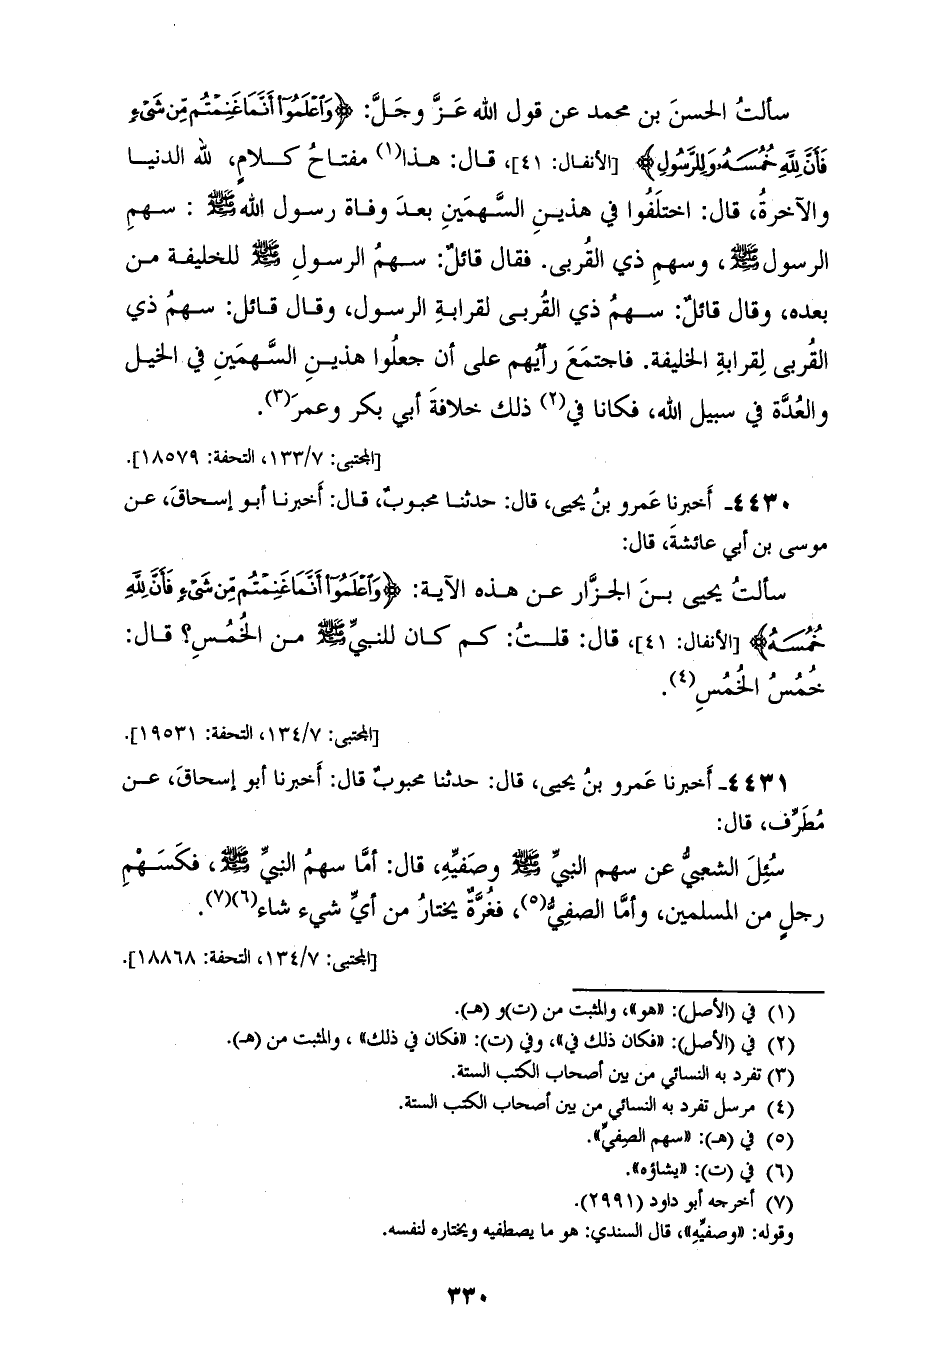 سألتُ الحسنَ بن محمد عن قول الله عَـزَّ وجَلَّ: ﴿وَٱعْلَمُوٓا۟ أَنَّمَا غَنِمْتُم مِّن شَىْءٍ
فَأَنَّ لِلَّهِ خُمُسَهُۥ وَلِلرَّسُولِ﴾ [الأنفال: ٤١]، قـال: هـذا(١) مفتـاحُ كـلامٍ، لله الدنيـا
والآخرةُ، قال: اختلَفُوا في هذيـنِ السَّـهمَينِ بعـدَ وفـاة رسـول اللهﷺ : سـهمِ
الرسولﷺ، وسهمِ ذي القُربى. فقال قائلٌ: سـهمُ الرسـولِ ﷺ للخليفـة مـن
بعده، وقال قائلٌ: سـهمُ ذي القُربـى لقرابـةِ الرسـول، وقـال قـائل: سـهمُ ذي
القُربى لِقرابةِ الخليفة. فاجتمَعَ رأيُهم على أن جعلُوا هذيـنِ السَّـهمَينِ في الخيـل
والعُدَّة في سبيل الله، فكانا في(٢) ذلك خلافةَ أبي بكر وعمرَ(٣).
[المجتبى: ١٣٣/٧، التحفة: ١٨٥٧٩].
٤٤٣٠ـ أَخبرنا عَمرو بنُ يحيى، قال: حدثنـا محبوبٌ، قـال: أَخبرنـا أبـو إسـحاقَ، عـن
موسى بن أبي عائشةَ، قال:
سألتُ يحيى بـنَ الجـزَّار عـن هـذه الآيـة: ﴿وَٱعْلَمُوٓا۟ أَنَّمَا غَنِمْتُم مِّن شَىْءٍ فَأَنَّ لِلَّهِ
خُمُسَهُ﴾ [الأنفال: ٤١]، قال: قلـتُ: كـم كان للنبيِّﷺ مـن الخُمُـسِ؟ قـال:
خُمُسُ الخُمُسِ(٤).
[المجتبى: ١٣٤/٧، التحفة: ١٩٥٣١].
٤٤٣١ـ أَخبرنا عَمرو بنُ يحيى، قال: حدثنا محبوبٌ قال: أَخبرنا أبو إسحاقَ، عـن
مُطَرِّف، قال:
سُئِلَ الشعبيُّ عن سهم النبيِّ ﷺ وصَفيِّهِ، قال: أمَّا سهمُ النبيِّ ﷺ، فكَسَـهْمِ
رجلٍ من المسلمين، وأمَّا الصفِيُّ(٥)، فغُرَّةٌ يختارُ من أيِّ شيء شاء(٦)(٧).
[المجتبى: ١٣٤/٧، التحفة: ١٨٨٦٨].
(١) في (الأصل): «هو»، والمثبت من (ت)و (هـ).
(٢) في (الأصل): «فكان ذلك في»، وفي (ت): «فكان في ذلك» ، والمثبت من (هـ).
(٣) تفرد به النسائي من بين أصحاب الكتب الستة.
(٤) مرسل تفرد به النسائي من بين أصحاب الكتب الستة.
(٥) في (هـ): «سهم الصفيِّ».
(٦) في (ت): «يشاؤه».
(٧) أخرجه أبو داود (٢٩٩١).
وقوله: «وصفيِّهِ»، قال السندي: هو ما يصطفيه ويختاره لنفسه.
٣٣٠